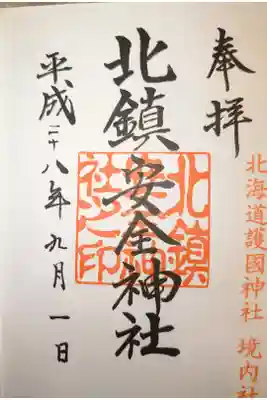 奉拝
北海道護國神社 境内社
北鎮安全神社
北鎮
社之印
平成二十八年九月一日